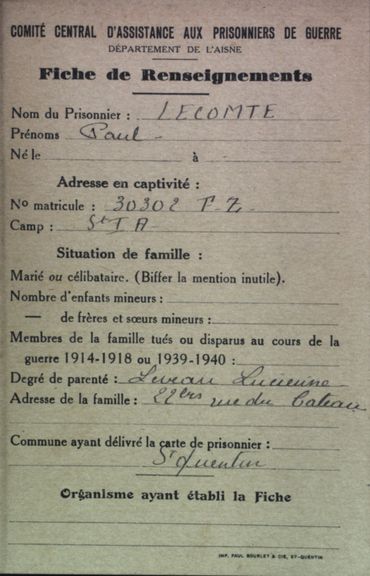 COMITÉ CENTRAL D'ASSISTANCE AUX PRISONNIERS DE GUERRE
DÉPARTEMENT DE L'AISNE
Fiche de Renseignements
Nom du Prisonnier : LECOMTE
Prénoms Paul
Né le à
Adresse en captivité :
No matricule : 30302 F.Z
Camp : St I A
Situation de famille :
Marié ou célibataire. (Biffer la mention inutile).
Nombre d'enfants mineurs :
— de frères et sœurs mineurs :
Membres de la famille tués ou disparus au cours de la
guerre 1914-1918 ou 1939-1940 :
Degré de parenté : Lucienne
Adresse de la famille : 22bis rue du Cateau
Commune ayant délivré la carte de prisonnier :
St Quentin
Organisme ayant établi la Fiche
IMP. PAUL BOURLET & CIE, ST-QUENTIN